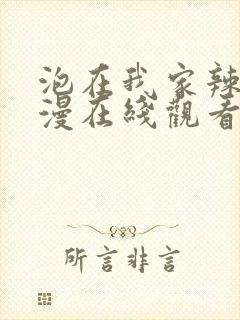 泡在我家辣
漫在綫觀看
所言非言